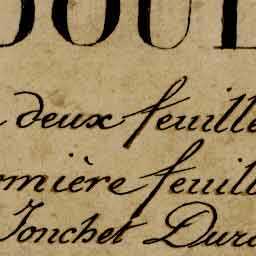 OUL
deux feuille
rmière feuill
Jonchet Dur